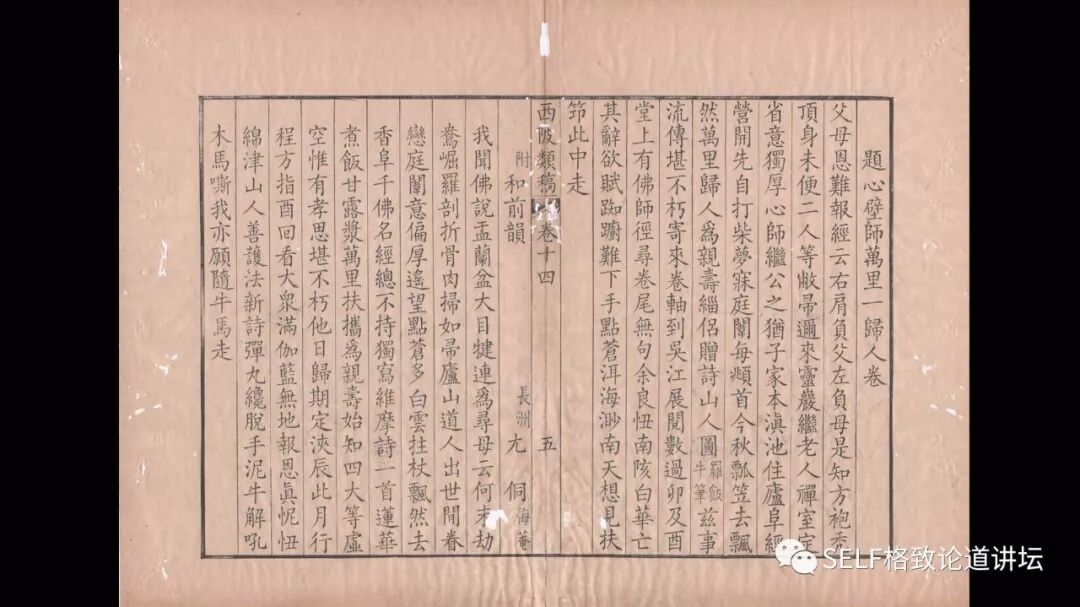 題心壁師萬里一歸人卷
父母恩難報經云右肩負父左負母是知方袍禿
頂身未便二人等敝帚邇來靈巖繼老人禪室定
省意獨厚心師繼公之猶子家本滇池住廬阜經
營開先自打柴夢寐庭闈每頫首今秋瓢笠去飄
然萬里歸人爲親壽緇侶贈詩山人圖羅飯牛筆茲事
流傳堪不朽寄來卷軸到吳江展閱數過卯及酉
堂上有佛師徑尋卷尾無句余良忸南陔白華亡
其辭欲賦踟躕難下手點蒼洱海渺南天想見扶
筇此中走
西陂類稿 卷十四 五
附和前韻 長洲尤侗悔菴
我聞佛說盂蘭盆大目犍連爲尋母云何末劫
鴦崛羅剖折骨肉掃如帚廬山道人出世間眷
戀庭闈意偏厚遙望點蒼多白雲拄杖飄然去
香阜千佛名經總不持獨寫維摩詩一首蓮華
煮飯甘露漿萬里扶攜爲親壽始知四大等虛
空惟有孝思堪不朽他日歸期定浹辰此月行
程方指酉回看大衆滿伽藍無地報恩眞怩忸
綿津山人善護法新詩彈丸纔脫手泥牛解吼
木馬嘶我亦願隨牛馬走
SELF格致论道讲坛